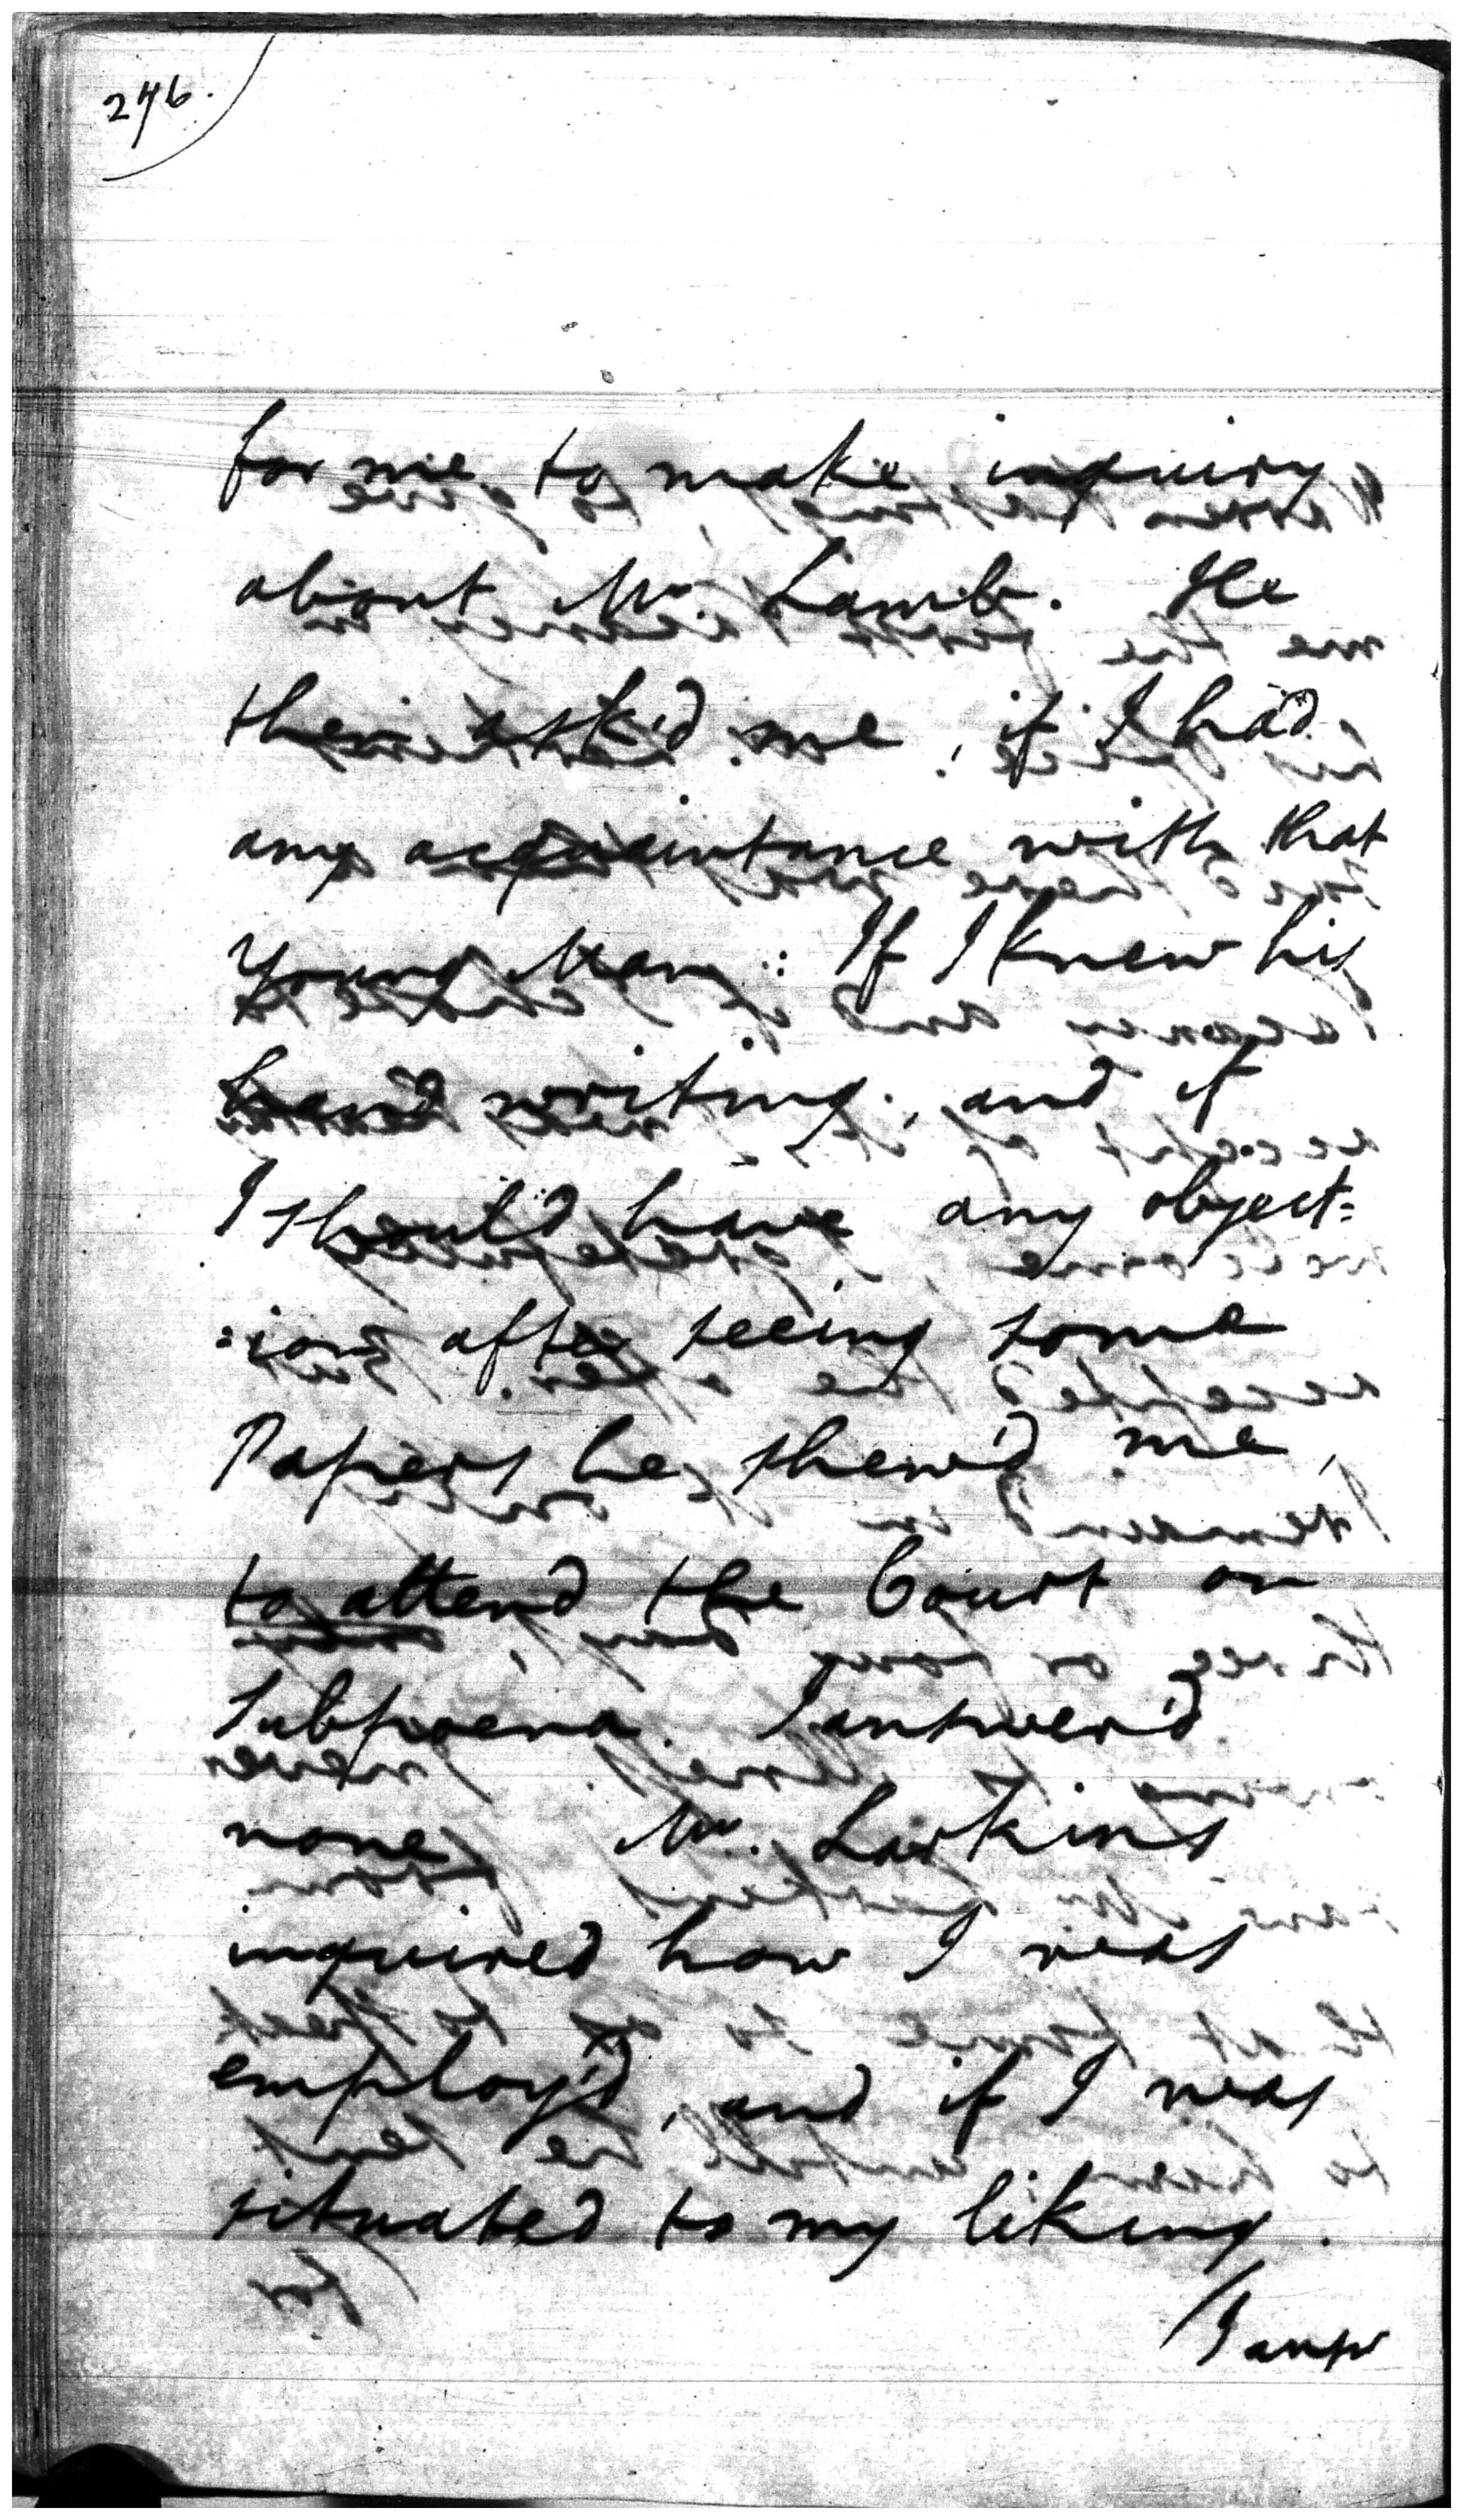 276.
for me to make inquiry
about Mr. Lamb. He
then ask'd me, if I had
any acquaintance with that
Young Man: If I knew his
hand writing, and if
I should have any object=
:ion after seeing some
Papers he shew'd me,
to attend the Court on
Subpoena. I answer'd
none. Mr. Larkins
inquired how I was
employ'd, and if I was
situated to my liking.
/I answ